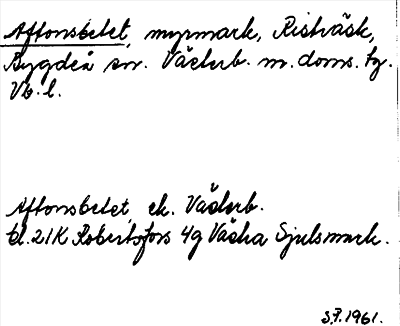 Aftonsbetet, myrmark, Risträsk,
Bygdeå sn. Västerb. m. doms. tg.
Vb. l.
Aftonsbetet, ek. Västerb.
bl. 21K Robertsfors 4g Västra Sjulsmark.
S.P. 1961.